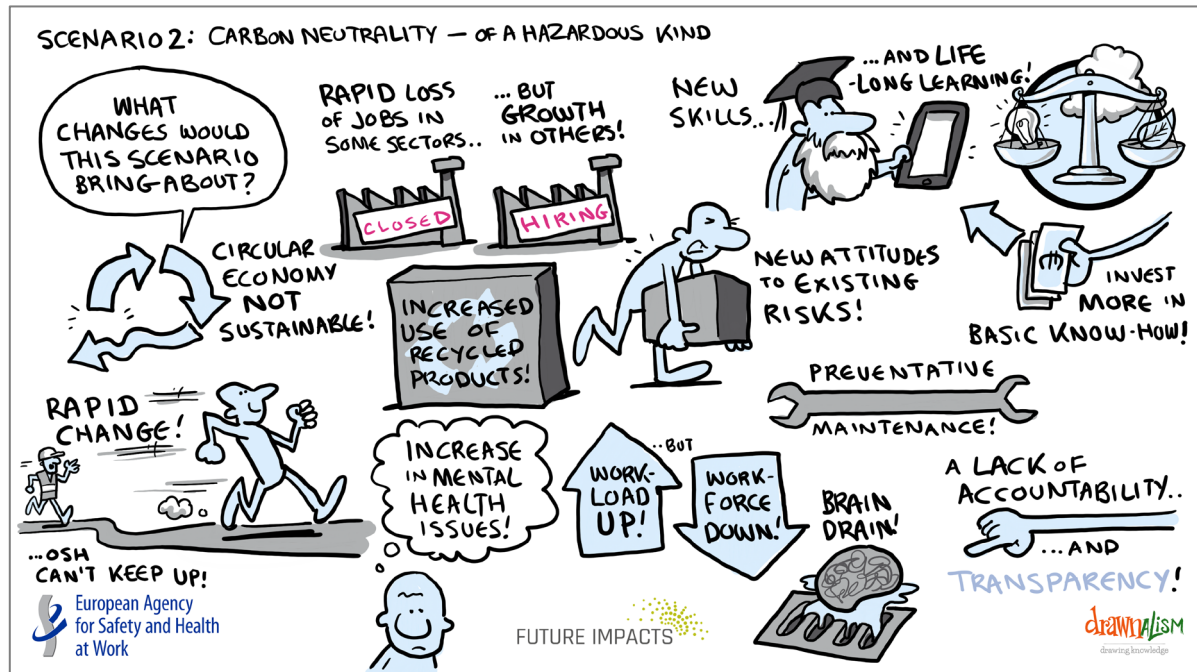 SCENARIO 2: CARBON NEUTRALITY — OF A HAZARDOUS KIND
WHAT
CHANGES WOULD
THIS SCENARIO
BRING ABOUT?
RAPID LOSS
OF JOBS IN
SOME SECTORS..
CLOSED
... BUT
GROWTH
IN OTHERS!
HIRING
NEW
SKILLS...
...AND LIFE
-LONG LEARNING!
CIRCULAR
ECONOMY
NOT
SUSTAINABLE!
INCREASED
USE OF
RECYCLED
PRODUCTS!
NEW ATTITUDES
TO EXISTING
RISKS!
INVEST
MORE IN
BASIC KNOW-HOW!
PREVENTATIVE
MAINTENANCE!
RAPID
CHANGE!
...OSH
CAN'T KEEP UP!
INCREASE
IN MENTAL
HEALTH
ISSUES!
WORK-
LOAD
UP!
..BUT
WORK-
FORCE
DOWN!
BRAIN
DRAIN!
A LACK OF
ACCOUNTABILITY..
...AND
TRANSPARENCY!
European Agency
for Safety and Health
at Work
FUTURE IMPACTS
drawnalism
drawing knowledge